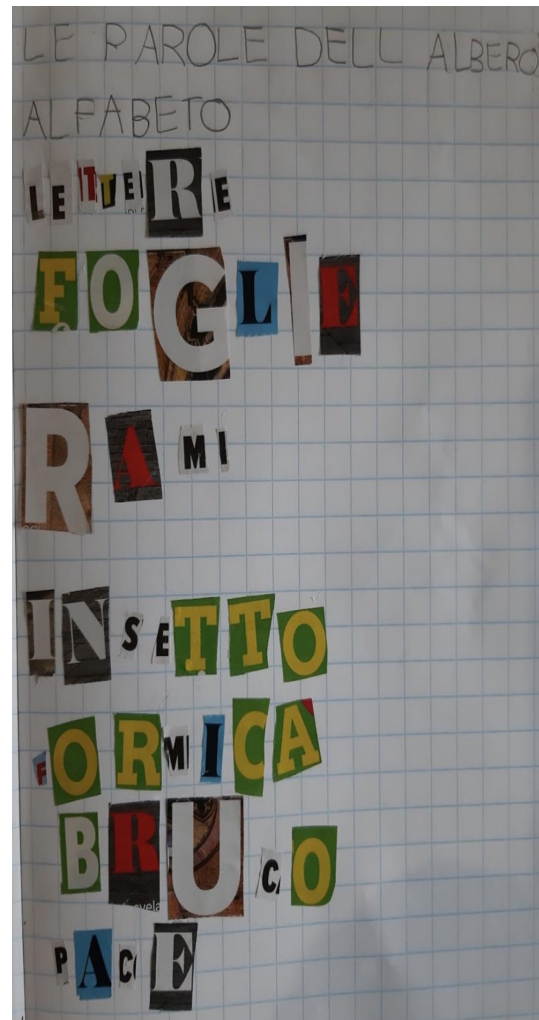 LE PAROLE DELL ALBERO
ALFABETO
LETTERE
FOGLIE
RAMI
INSETTO
FORMICA
BRUCO
PACE